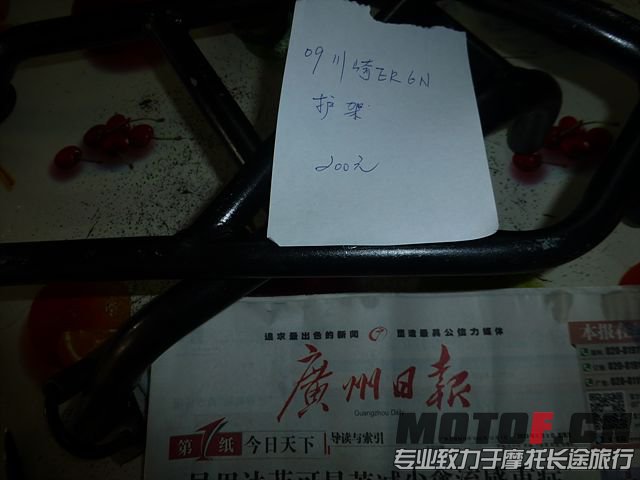 09川崎ER6N
护架
200元
追求最出色的新闻 塑造最具公信力媒体
廣州日報
Guangzhou Daily
本报社
第1纸 今日天下 导读与索引
MOTOF.CN
专业致力于摩托长途旅行